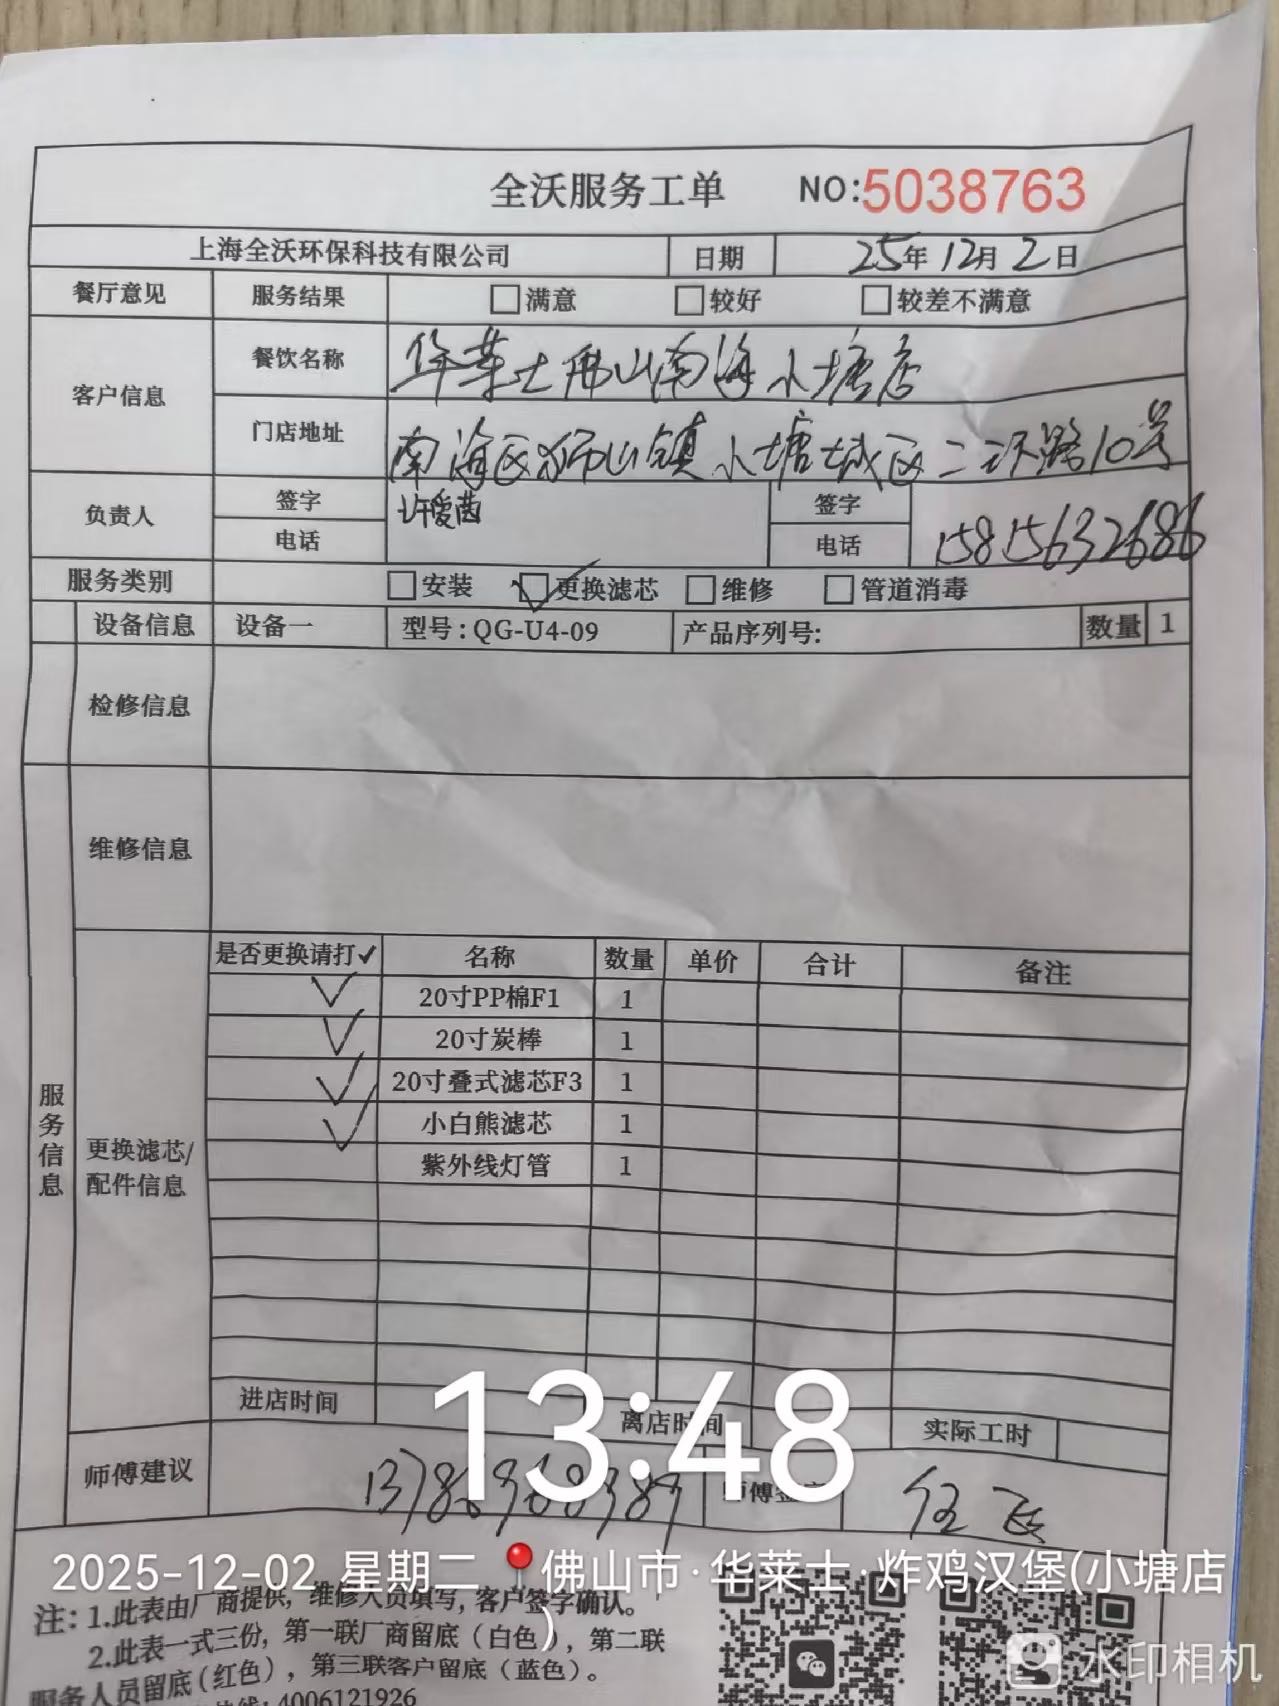 全沃服务工单 NO:5038763
上海全沃环保科技有限公司 日期 25年12月2日
餐厅意见 服务结果 □满意 □较好 □较差不满意
客户信息 餐饮名称 华莱士佛山南海小塘店
门店地址 南海区狮山镇小塘城区二环路10号
负责人 签字 许爱茵 签字
电话 电话 15815632686
服务类别 □安装 ☑更换滤芯 □维修 □管道消毒
设备信息 设备一 型号:QG-U4-09 产品序列号: 数量 1
检修信息
维修信息
服务信息
更换滤芯/
配件信息
是否更换请打✓ 名称 数量 单价 合计 备注
✓ 20寸PP棉F1 1
✓ 20寸炭棒 1
✓ 20寸叠式滤芯F3 1
✓ 小白熊滤芯 1
紫外线灯管 1
进店时间 离店时间 实际工时
13:48
师傅建议 师傅签字 任飞
2025-12-02 星期二 佛山市·华莱士·炸鸡汉堡(小塘店
)
注: 1.此表由厂商提供, 维修人员填写, 客户签字确认。
2.此表一式三份, 第一联厂商留底(白色), 第二联
服务人员留底(红色), 第三联客户留底(蓝色)。
4006121926
水印相机